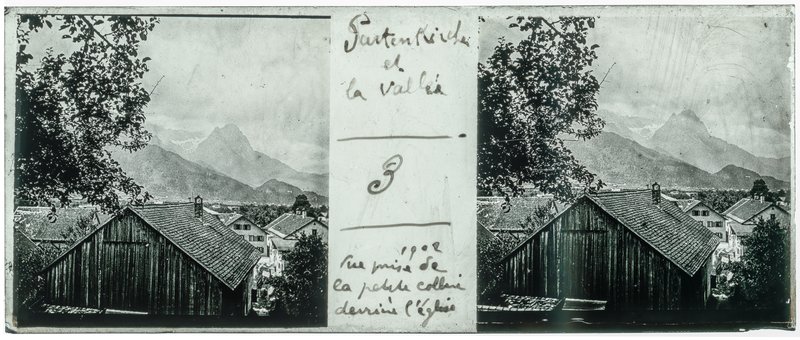 Partenkirche
et
la vallée
3
1902
vue prise de
la petite colline
derrière l'église